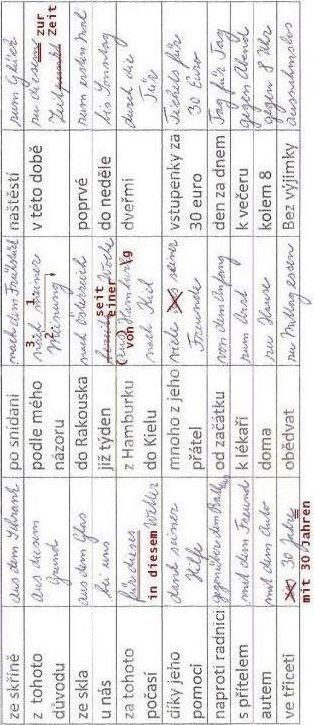 ze skříně aus dem Schrank po snídani nach dem Frühstück naštěstí zum Glück
z tohoto aus diesem podle mého 3 1 nach meiner v této době zu diesem zur
důvodu Grund názoru 2 Meinung Zeitpunkt Zeit
ze skla aus dem Glas do Rakouska nach Österreich poprvé zum ersten Mal
u nás bei uns již týden seit einer Woche do neděle bis Sonntag
za tohoto für dieses Wetter z Hamburku (aus) Hamburg dveřmi durch die
počasí in diesem do Kielu von nach Kiel Tür
díky jeho dank seiner mnoho z jeho viele seiner vstupenky za Tickets für
pomoci Hilfe přátel Freunde 30 euro 30 Euro
naproti radnici gegenüber dem od začátku von dem Anfang den za dnem Tag für Tag
s přítelem mit dem Freund k lékaři zum Arzt k večeru gegen Abend
autem mit dem Auto doma zu Hause kolem 8 gegen 8 Uhr
ve třiceti 30 Jahre obědvat zu Mittag essen Bez výjimky ausnahmslos
mit 30 Jahren